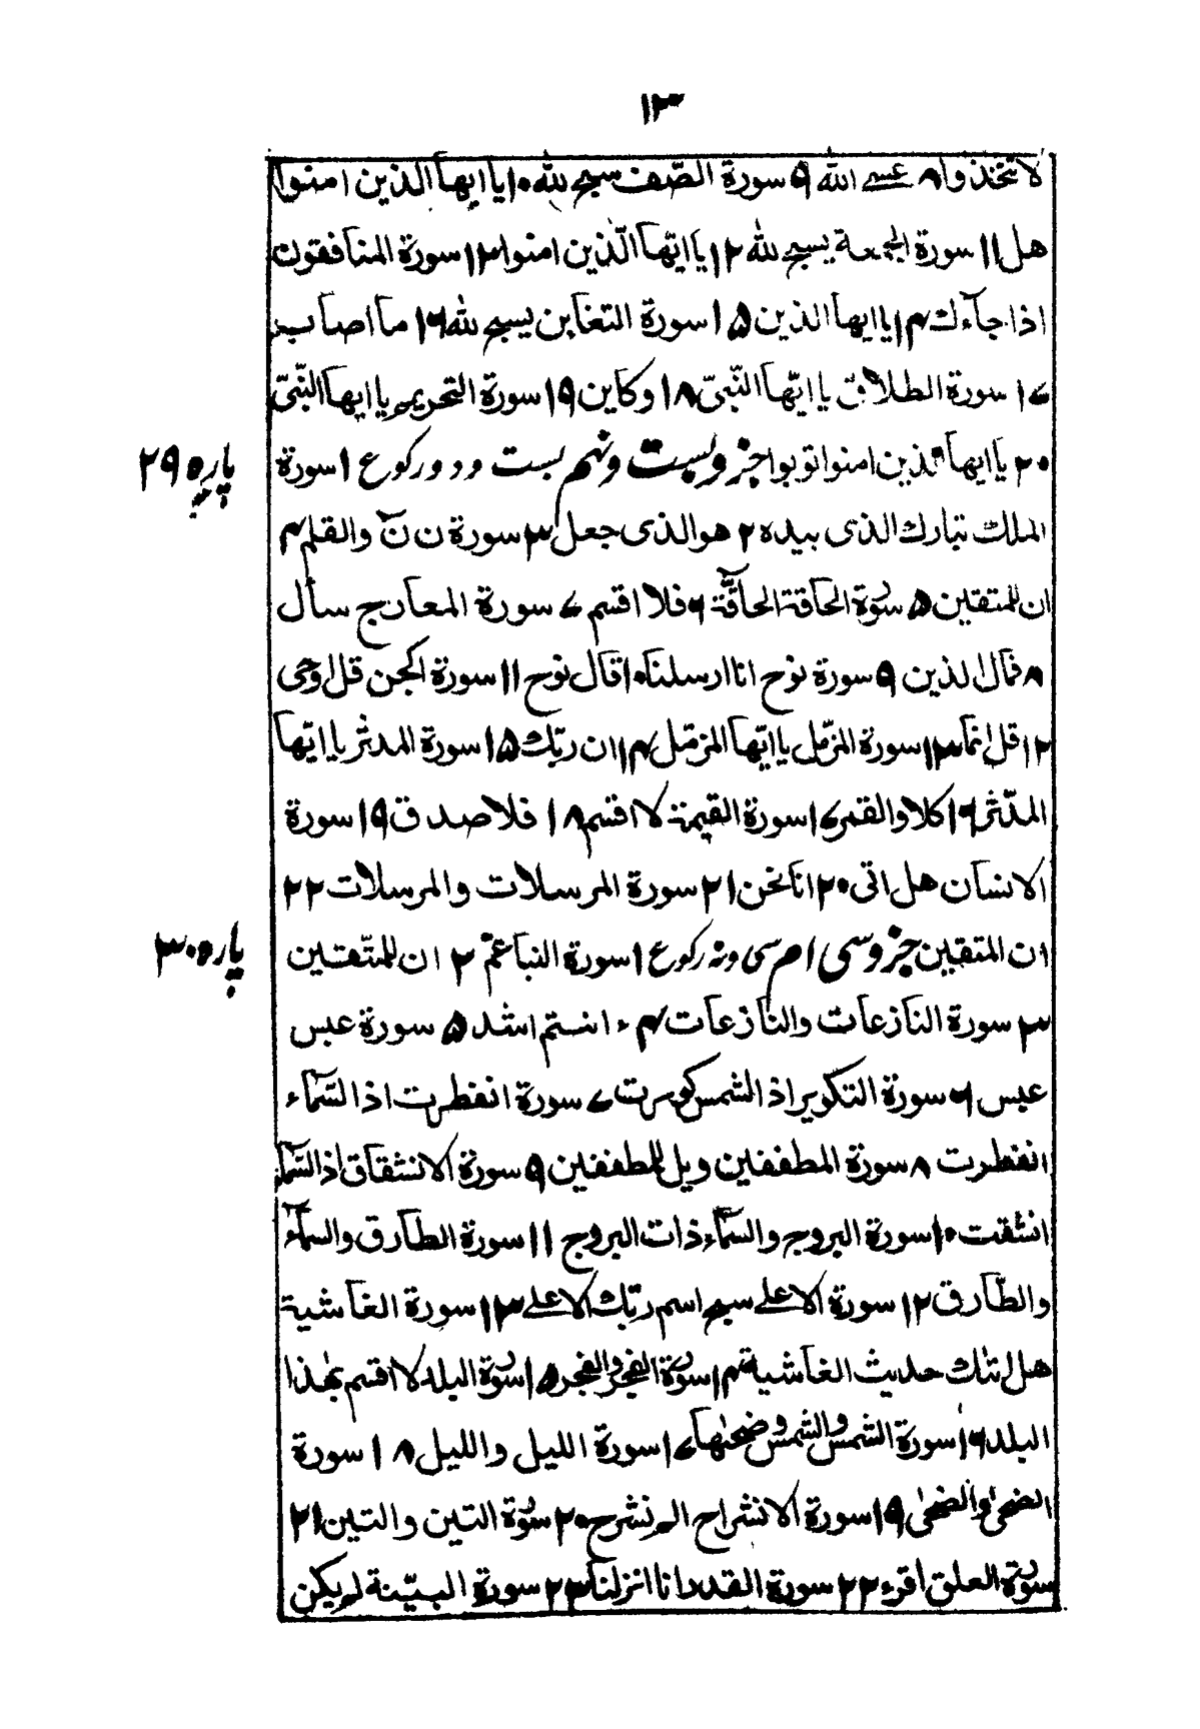 ۱۳
لا تتخذوا ۸ عسے اللّٰه ۹ سورة الصّف سبح للّٰه ۱۰ یا ایهآ الذین امنوا
هل ۱۱ سورة الجمعة یسبح للّٰه ۱۲ یا ایّها الّذین امنوا ۱۳ سورة المنافقون
اذا جآءك ۱۴ یا ایها الذین ۱۵ سورة التغابن یسبح للّٰه ۱۶ ما اصاب
۱۷ سورة الطلاق یا ایّها النّبیّ ۱۸ وکاین ۱۹ سورة التحریم یا ایها النّبیّ
۲۰ یا ایها الذین امنوا توبوا جزو بست ونهم بست ودو رکوع ۱ سورة
پاره ۲۹
الملك تبارك الذی بیده ۲ هو الذی جعل ۳ سورة ن نٓ والقلم ۴
ان للمتقین ۵ سورة الحاقة الحآقّة ۶ فلا اقسم ۷ سورة المعارج سأل
۸ فمال الذین ۹ سورة نوح انا ارسلنا ۱۰ قال نوح ۱۱ سورة الجن قل اوحی
۱۲ قل انما ۱۳ سورة المزّمل یا ایّها المزمّل ۱۴ ان ربّك ۱۵ سورة المدثر یا ایّها
المدّثر ۱۶ کلا والقمر ۱۷ سورة القیمة لا اقسم ۱۸ فلا صدق ۱۹ سورة
الانسان هل اتی ۲۰ انا نحن ۲۱ سورة المرسلات والمرسلات ۲۲
ان المتقین جزو سی ام سی ونه رکوع ۱ سورة النبا عمّ ۲ ان للمتّقین
پاره ۳۰
۳ سورة النازعات والنازعات ۴ ءانتم اشد ۵ سورة عبس
عبس ۶ سورة التکویر اذ الشمس کورت ۷ سورة انفطرت اذ السّمآء
انفطرت ۸ سورة المطففین ویل للمطففین ۹ سورة الانشقاق اذ السّمآء
انشقت ۱۰ سورة البروج والسّمآء ذات البروج ۱۱ سورة الطارق والسمآء
والطّارق ۱۲ سورة الاعلے سبح اسم ربّك الاعلے ۱۳ سورة الغاشیة
هل اتٰك حدیث الغاشیة ۱۴ سورة الفجر والفجر ۱۵ سورة البلد لا اقسم بهٰذا
البلد ۱۶ سورة الشمس والشمس وضحٰها ۱۷ سورة اللیل واللیل ۱۸ سورة
الضحیٰ والضحیٰ ۱۹ سورة الانشراح الم نشرح ۲۰ سورة التین والتین ۲۱
سورة العلق اقرء ۲۲ سورة القدر انا انزلنا ۲۳ سورة البیّنة لم یکن